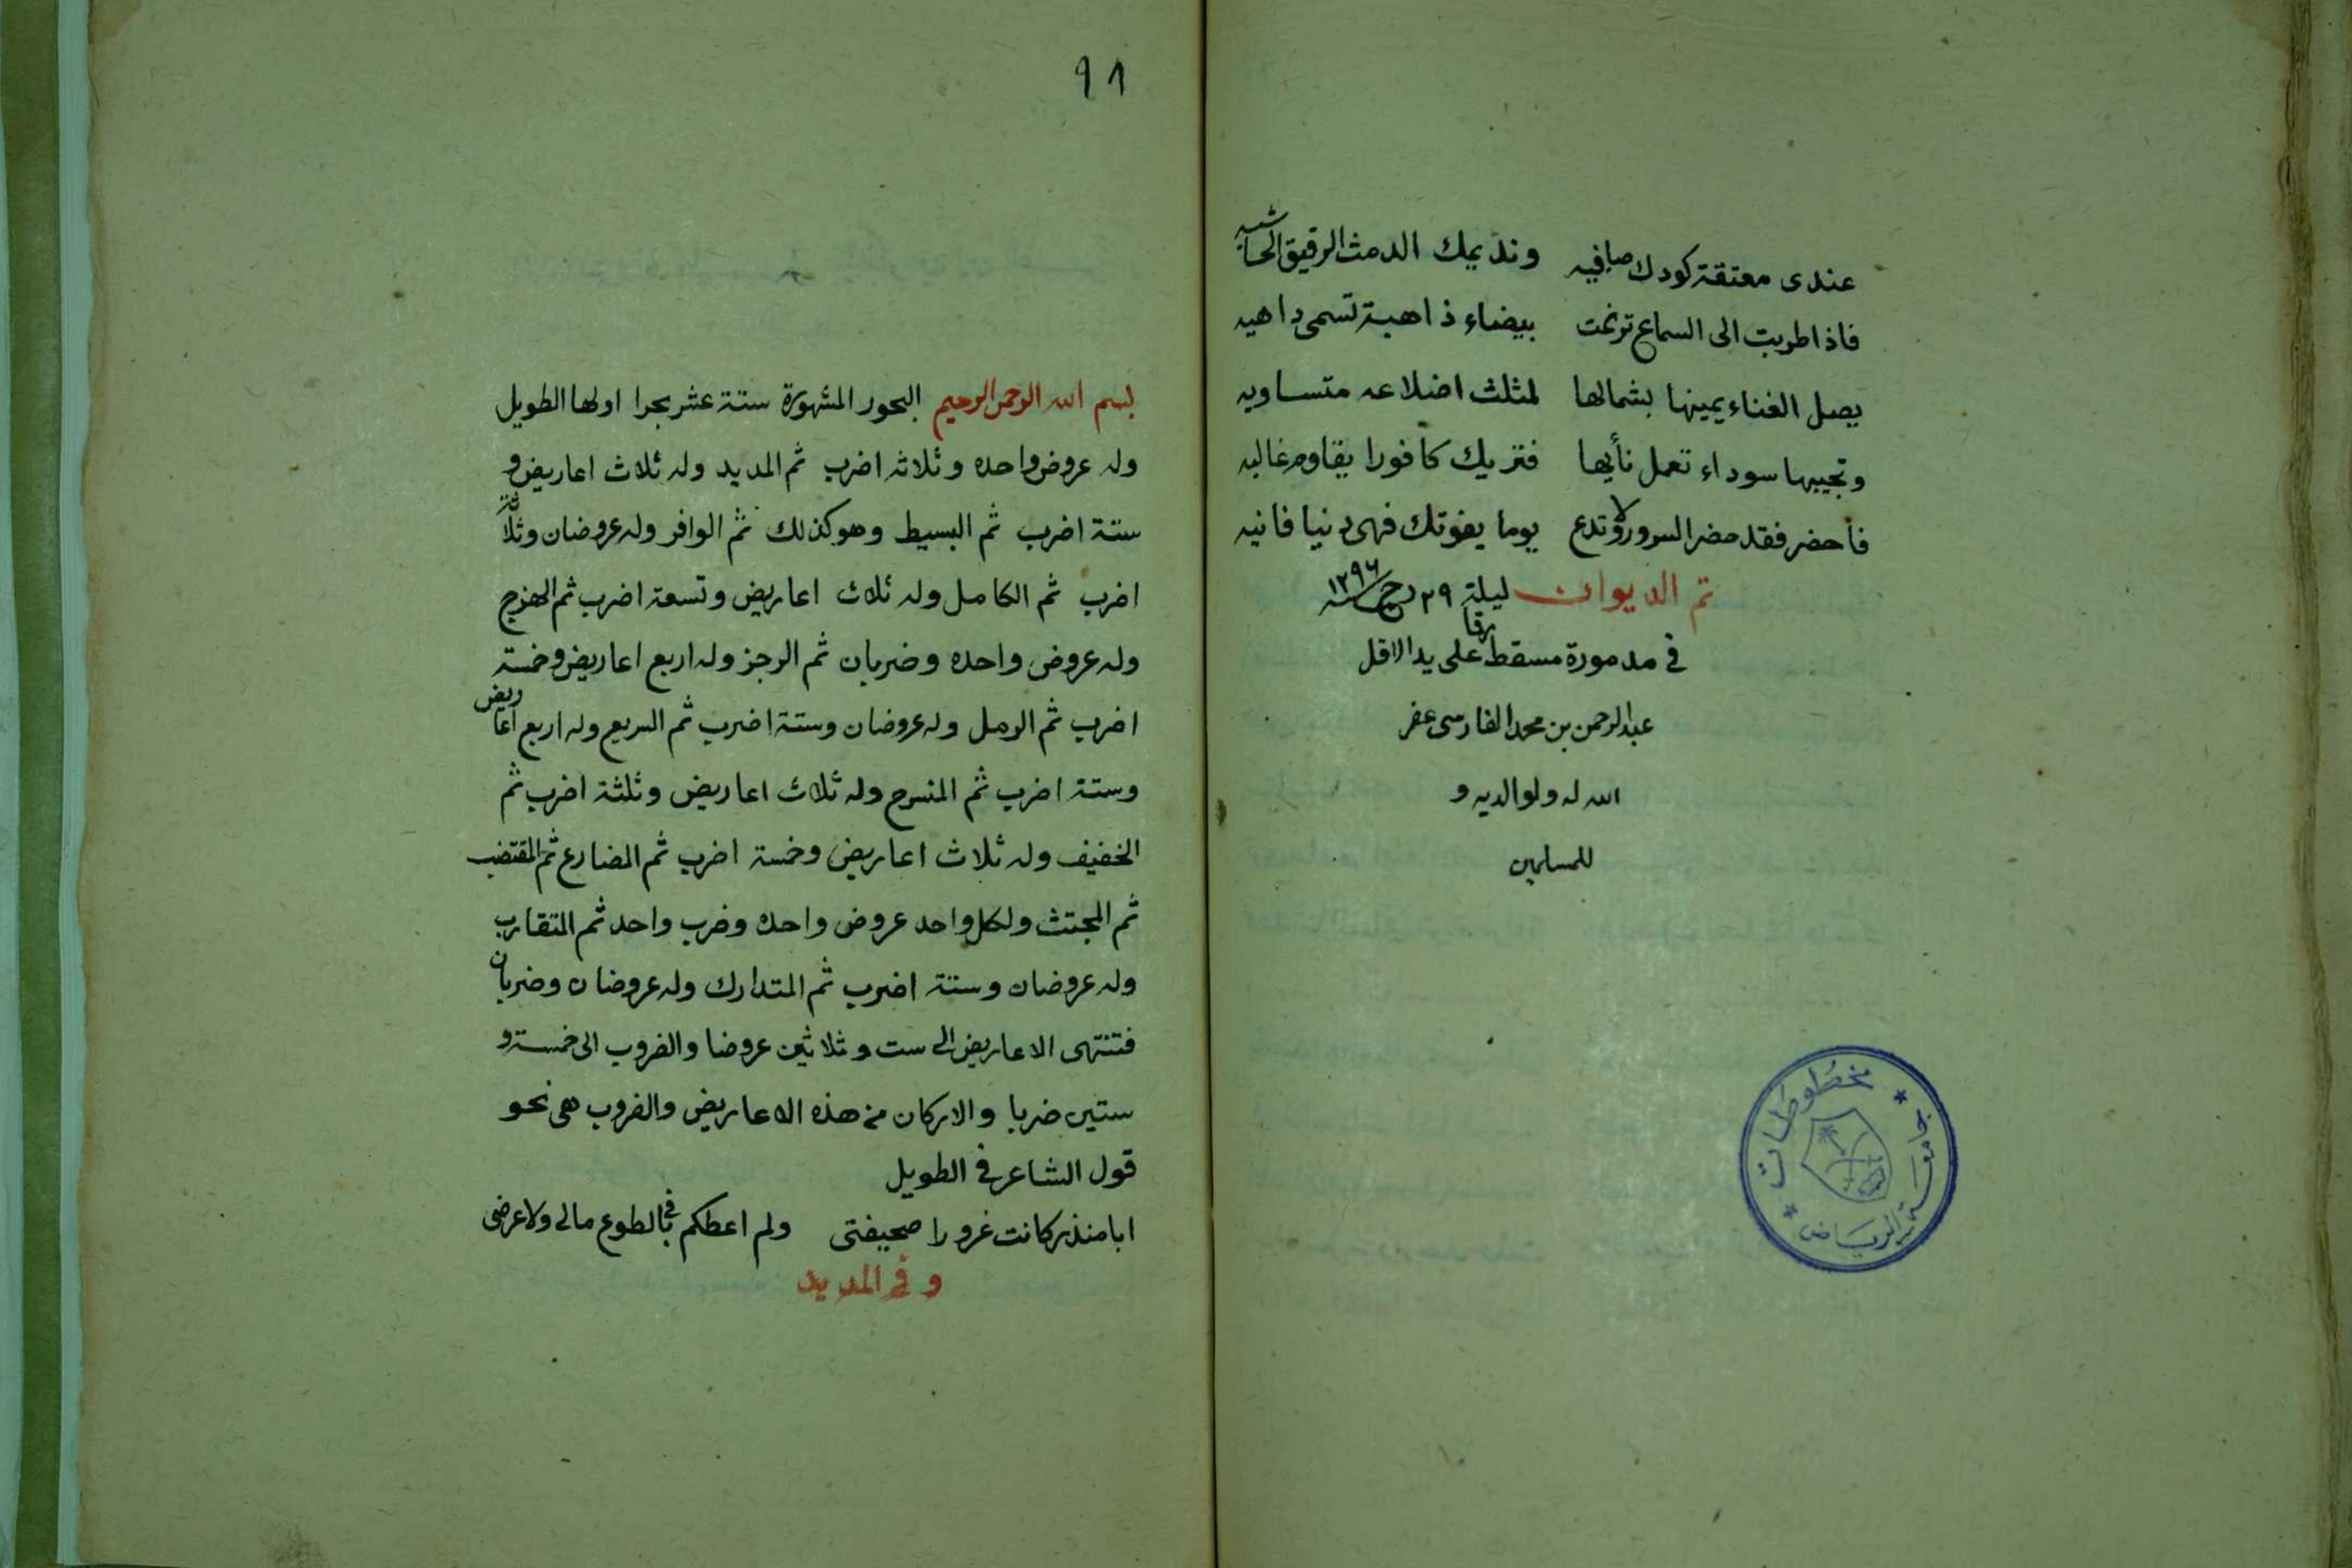 عندى معتقة كودك صافيه ونديمك الدمث الرقيق الحاشيه
فاذا طربت الى السماع ترنمت بيضاء ذاهبة تسمى داهيه
يصل الغناء يمينها بشمالها لمثلث اضلاعه متساويه
وتجيبها سوداء تعمل نأيها فتريك كافورا يقاوم غاليه
فأحضر فقد حضر السرور ولا تدع يوما يفوتك فهى دنيا فانيه
تم الديوان ليلة ٢٩ رجب ١٢٩٦
في مدمورة مسقط على يد الاقل
عبد الرحمن بن محمد الفارسى غفر
الله له ولوالديه و
للمسلمين
مخطوطات
جامعة الرياض
٩١
بسم الله الرحمن الرحيم البحور المشهورة ستة عشر بحرا اولها الطويل
وله عروض واحده وثلاثه اضرب ثم المديد وله ثلاث اعاريض و
ستة اضرب ثم البسيط وهو كذلك ثم الوافر وله عروضان وثلاثة
اضرب ثم الكامل وله ثلاث اعاريض وتسعة اضرب ثم الهزج
وله عروض واحده وضربان ثم الرجز وله اربع اعاريض وخمسة
اضرب ثم الرمل وله عروضان وستة اضرب ثم السريع وله اربع اعاريض
وستة اضرب ثم المنسرح وله ثلاث اعاريض وثلثة اضرب ثم
الخفيف وله ثلاث اعاريض وخمسة اضرب ثم المضارع ثم المقتضب
ثم المجتث ولكل واحد عروض واحده وضرب واحد ثم المتقارب
وله عروضان وستة اضرب ثم المتدارك وله عروضان وضربان
فتنتهى الاعاريض الى ست وثلاثين عروضا والضروب الى خمسة و
ستين ضربا والاركان من هذه الاعاريض والضروب هى نحو
قول الشاعر في الطويل
ابا منذر كانت غرورا صحيفتى ولم اعطكم في بالطوع مالى ولا عرضى
وفي المديد